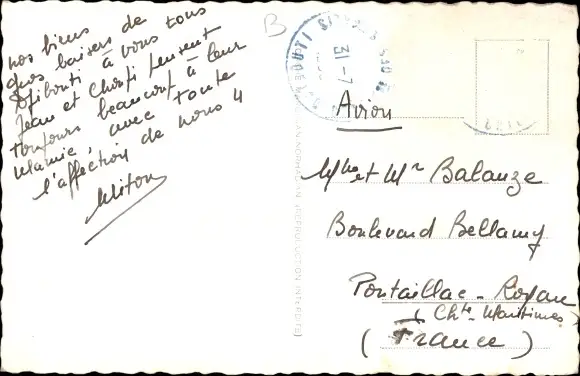 nos biens
gros baisers de
Djibouti à vous tous
Jean et Choupi pensent
toujours beaucoup à leur
Mamie, avec toute
l'affection de nous 4
Miton
B
DJIBOUTI
31-7
Avion
Mme et Mr Balauze
Boulevard Bellamy
Pontaillac - Royan
(Chte Maritimes)
(France)
REPRODUCTION INTERDITE)